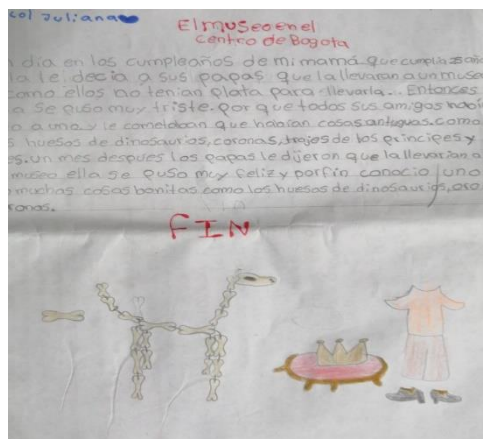 col Juliana
El museo en el
centro de Bogota
dia en los cumpleaños de mi mamá que cumplia
la le decia a sus papas que la llevaran a un museo
como ellos no tenian plata para llevarla... Entonces
a se puso muy triste. por que todos sus amigos
a uno y le comentaban que habian cosas antiguas. como
huesos de dinosaurios, coronas, trajes de los principes y
es. un mes despues los papas le dijeron que la llevarian a
museo ella se puso muy feliz y porfin conocio uno
muchas cosas bonitas como los huesos de dinosaurios, oro
ronas.
FIN